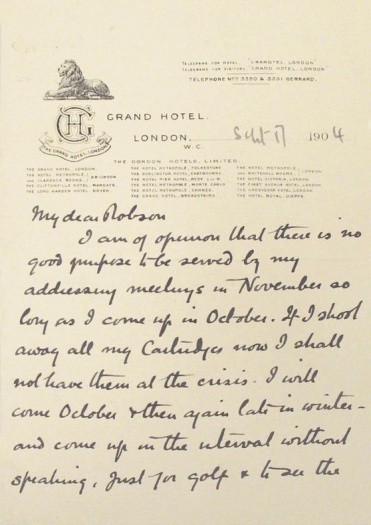 TELEGRAMS FOR HOTEL "GRANOTEL, LONDON"
TELEGRAMS FOR VISITORS "GRAND HOTEL, LONDON"
TELEPHONE Nos 3390 & 3391 GERRARD.
GH
THE GRAND HOTEL, LONDON
GRAND HOTEL.
LONDON, Sept 17 1904
W.C.
THE GORDON HOTELS, LIMITED.
THE GRAND HOTEL, LONDON. THE HOTEL METROPOLE, FOLKESTONE THE HOTEL METROPOLE,
THE HOTEL METROPOLE, BRIGHTON THE BURLINGTON HOTEL, EASTBOURNE AND WHITEHALL ROOMS, LONDON
AND CLARENCE ROOMS THE ROYAL PIER HOTEL, RYDE, I. of W. THE HOTEL VICTORIA, LONDON
THE CLIFTONVILLE HOTEL, MARGATE. THE HOTEL METROPOLE, MONTE CARLO THE FIRST AVENUE HOTEL, LONDON
THE LORD WARDEN HOTEL, DOVER THE HOTEL METROPOLE, CANNES. THE GROSVENOR HOTEL, LONDON
THE GRAND HOTEL, BROADSTAIRS. THE HOTEL ROYAL, DIEPPE.
My dear Robson
I am of opinion that there is no
good purpose to be served by my
addressing meetings in November so
long as I come up in October. If I shoot
away all my Cartridges now I shall
not have them at the crisis. I will
come October & then again late in winter -
and come up in the interval without
speaking, Just for golf & to see the